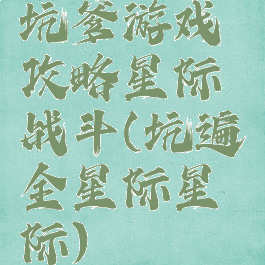 坑爹游戏
攻略星际
战斗(坑遍
全星际星
际)